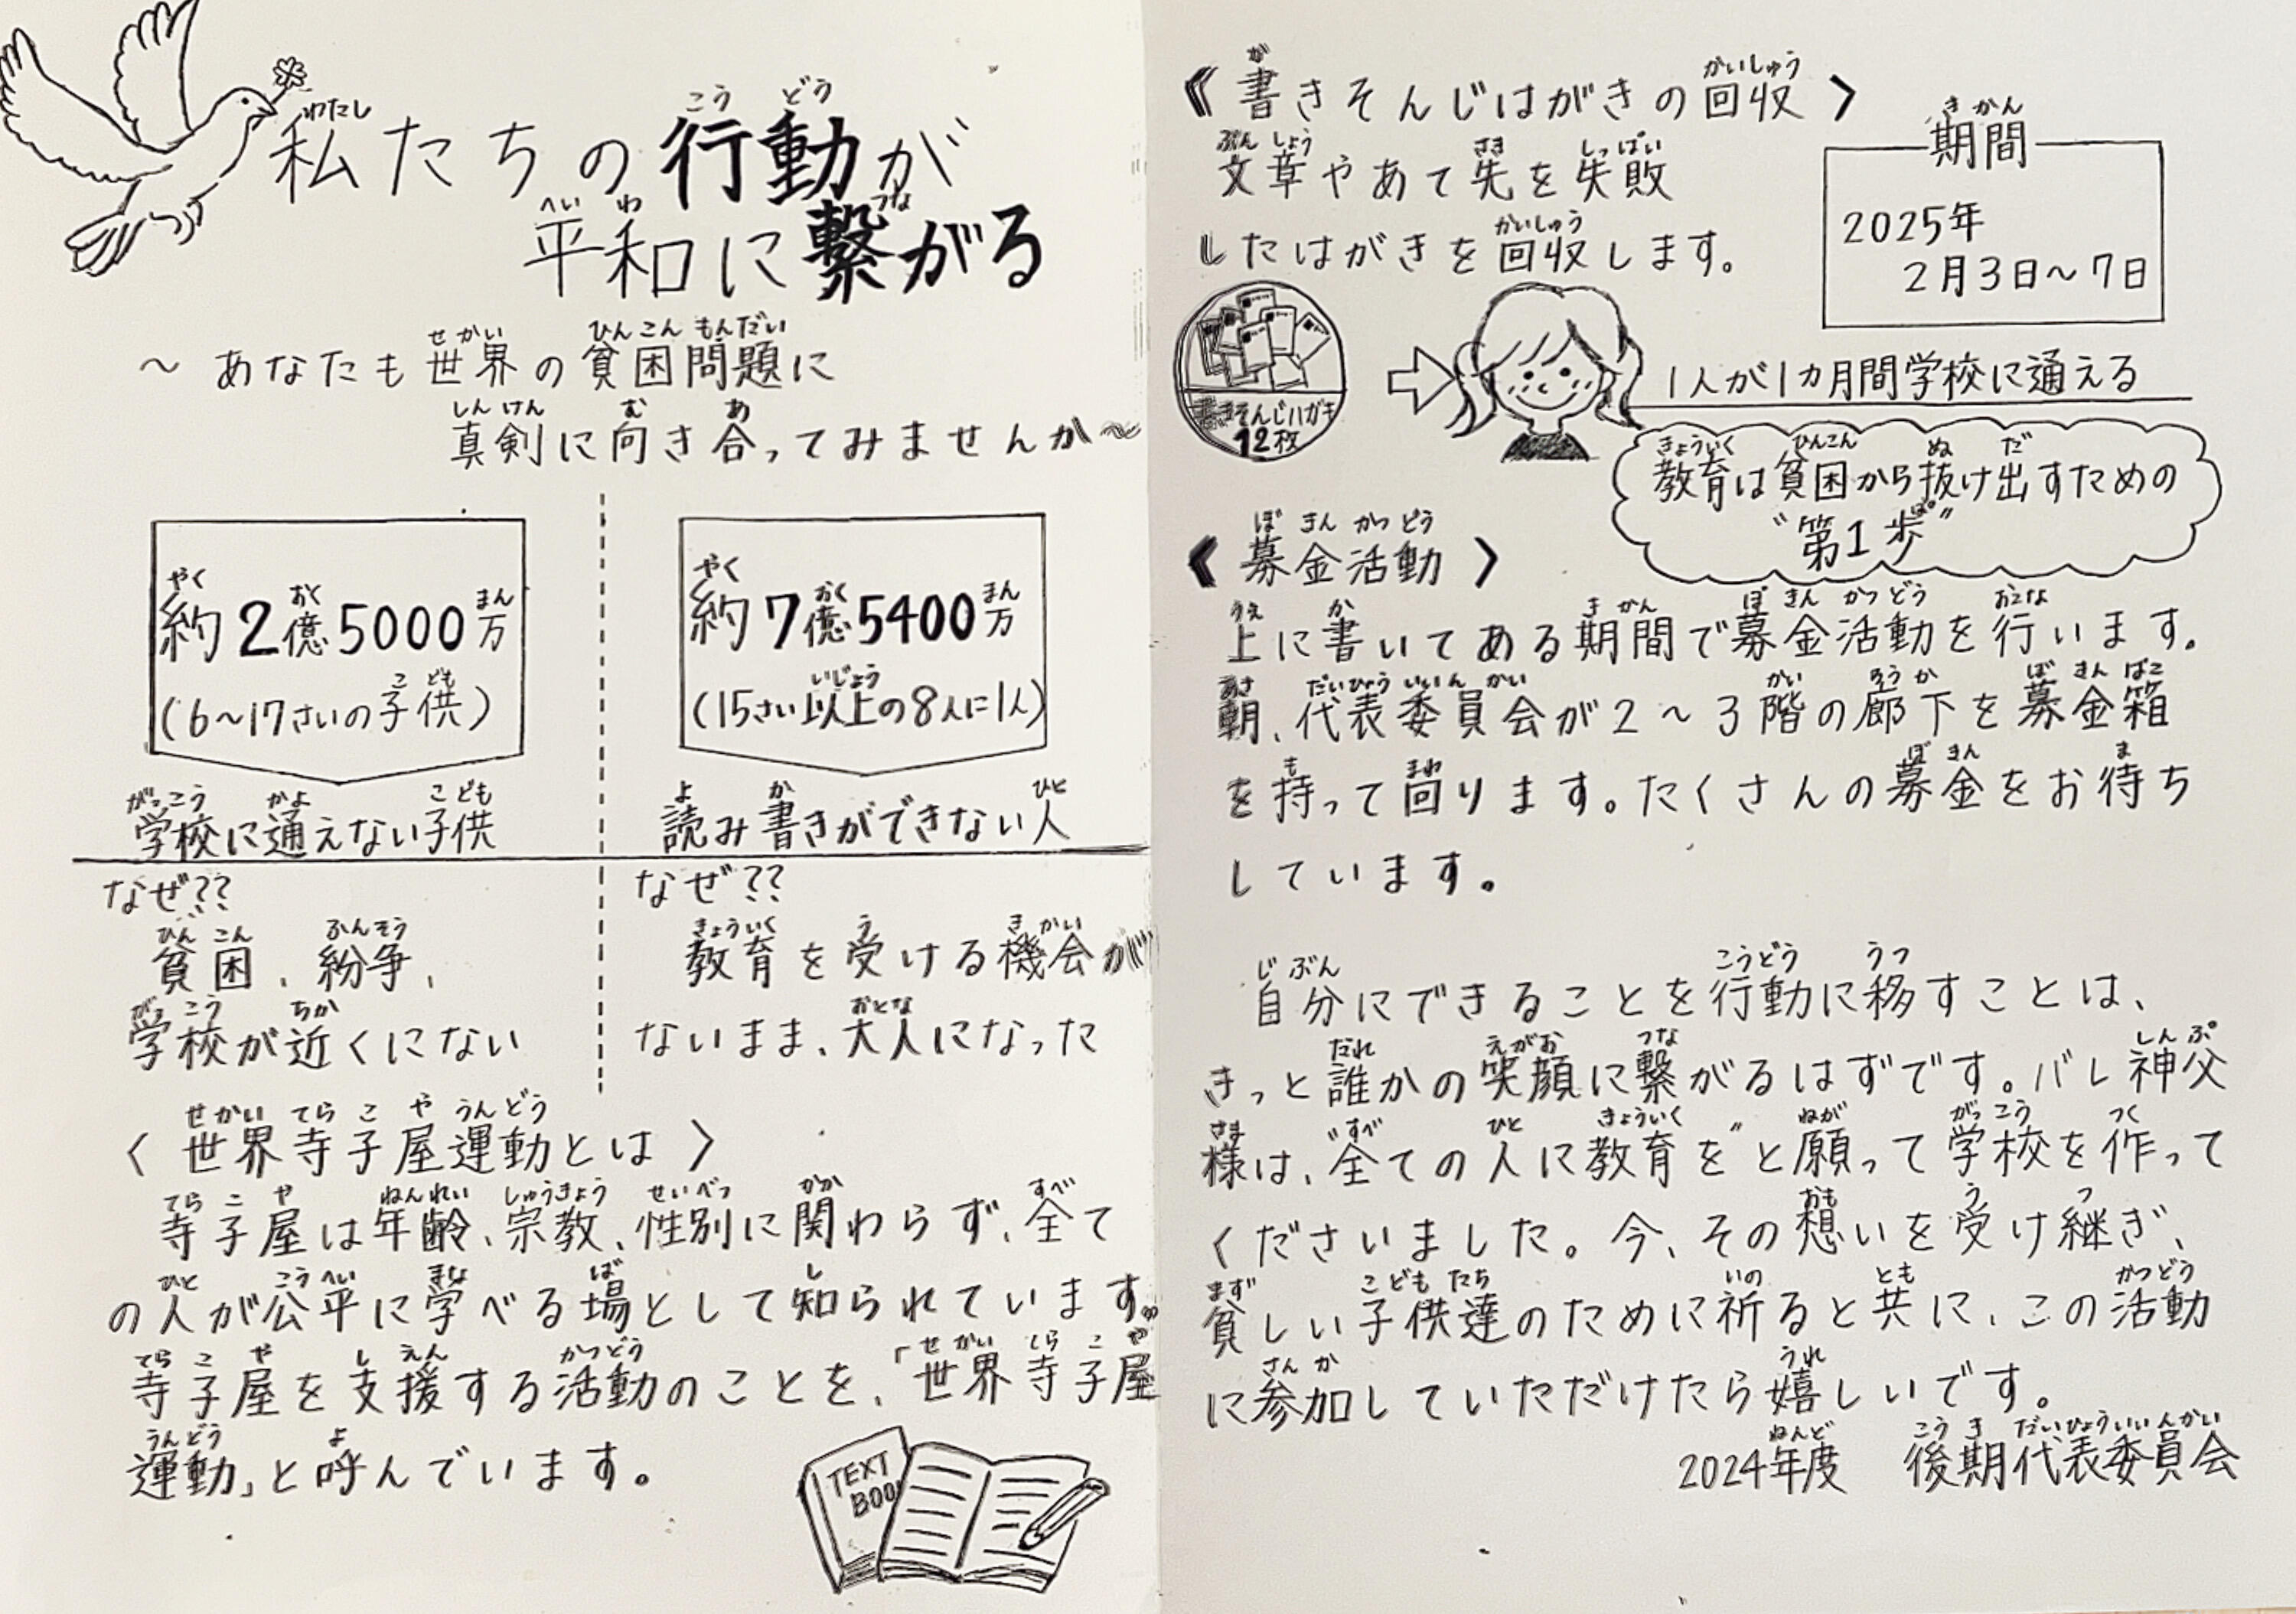 私たちの行動が
平和に繋がる
～あなたも世界の貧困問題に
真剣に向き合ってみませんか～
約2億5000万
(6～17さいの子供)
学校に通えない子供
なぜ??
貧困、紛争、
学校が近くにない
約7億5400万
(15さい以上の8人に1人)
読み書きができない人
なぜ??
教育を受ける機会が
ないまま、大人になった
〈世界寺子屋運動とは〉
寺子屋は年齢、宗教、性別に関わらず、全て
の人が公平に学べる場として知られています。
寺子屋を支援する活動のことを、「世界寺子屋
運動」と呼んでいます。
TEXT
BOO
《書きそんじはがきの回収》
文章やあて先を失敗
したはがきを回収します。
期間
2025年
2月3日～7日
書きそんじハガキ
12枚
1人が1カ月間学校に通える
教育は貧困から抜け出すための
"第1歩"
《募金活動》
上に書いてある期間で募金活動を行います。
朝、代表委員会が2～3階の廊下を募金箱
を持って回ります。たくさんの募金をお待ち
しています。
自分にできることを行動に移すことは、
きっと誰かの笑顔に繋がるはずです。バレ神父
様は、"全ての人に教育を"と願って学校を作って
くださいました。今、その想いを受け継ぎ、
貧しい子供達のために祈ると共に、この活動
に参加していただけたら嬉しいです。
2024年度 後期代表委員会